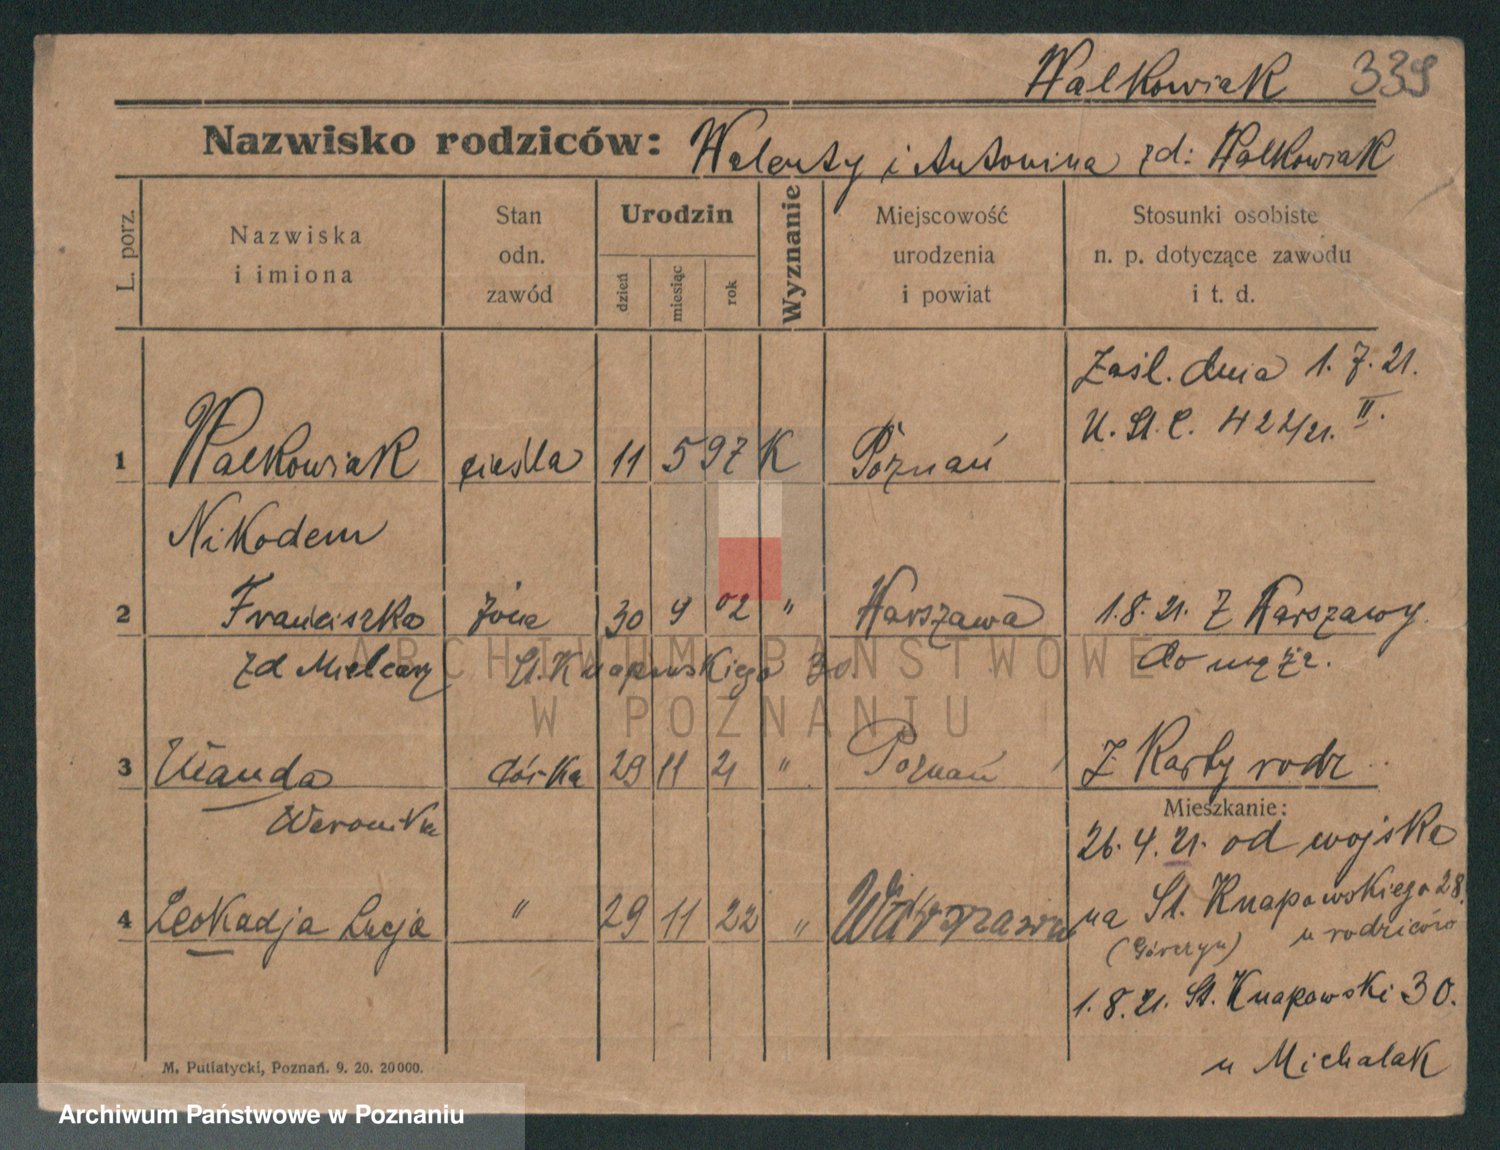 Walkowiak 339
Nazwisko rodziców: Walenty i Antonina zd: Walkowiak
L. porz.
Nazwiska
i imiona
Stan
odn.
zawód
Urodzin
dzień
miesiąc
rok
Wyznanie
Miejscowość
urodzenia
i powiat
Stosunki osobiste
n. p. dotyczące zawodu
i t. d.
Zaśl. dnia 1. 7. 21.
U. St. C. 422/21. II.
1 Walkowiak cieśla 11 5 97 K Poznań
Nikodem
2 Franciszka żona 30 9 02 " Warszawa 1.8.21. Z Warszawy
zd Mielcarz St. Knapowskiego 30. do męża.
3 Wanda córka 29 11 21 " Poznań Z Karty rodz
Weronika
Mieszkanie:
26.4.21. od wojska
4 Leokadja Lucja " 29 11 22 " Warszawa
na St. Knapowskiego 28.
(Górczyn) u rodziców
1.8.21. St. Knapowski 30.
u Michalak
M. Putiatycki, Poznań. 9. 20. 20000.
ARCHIWUM PAŃSTWOWE
W POZNANIU
Archiwum Państwowe w Poznaniu